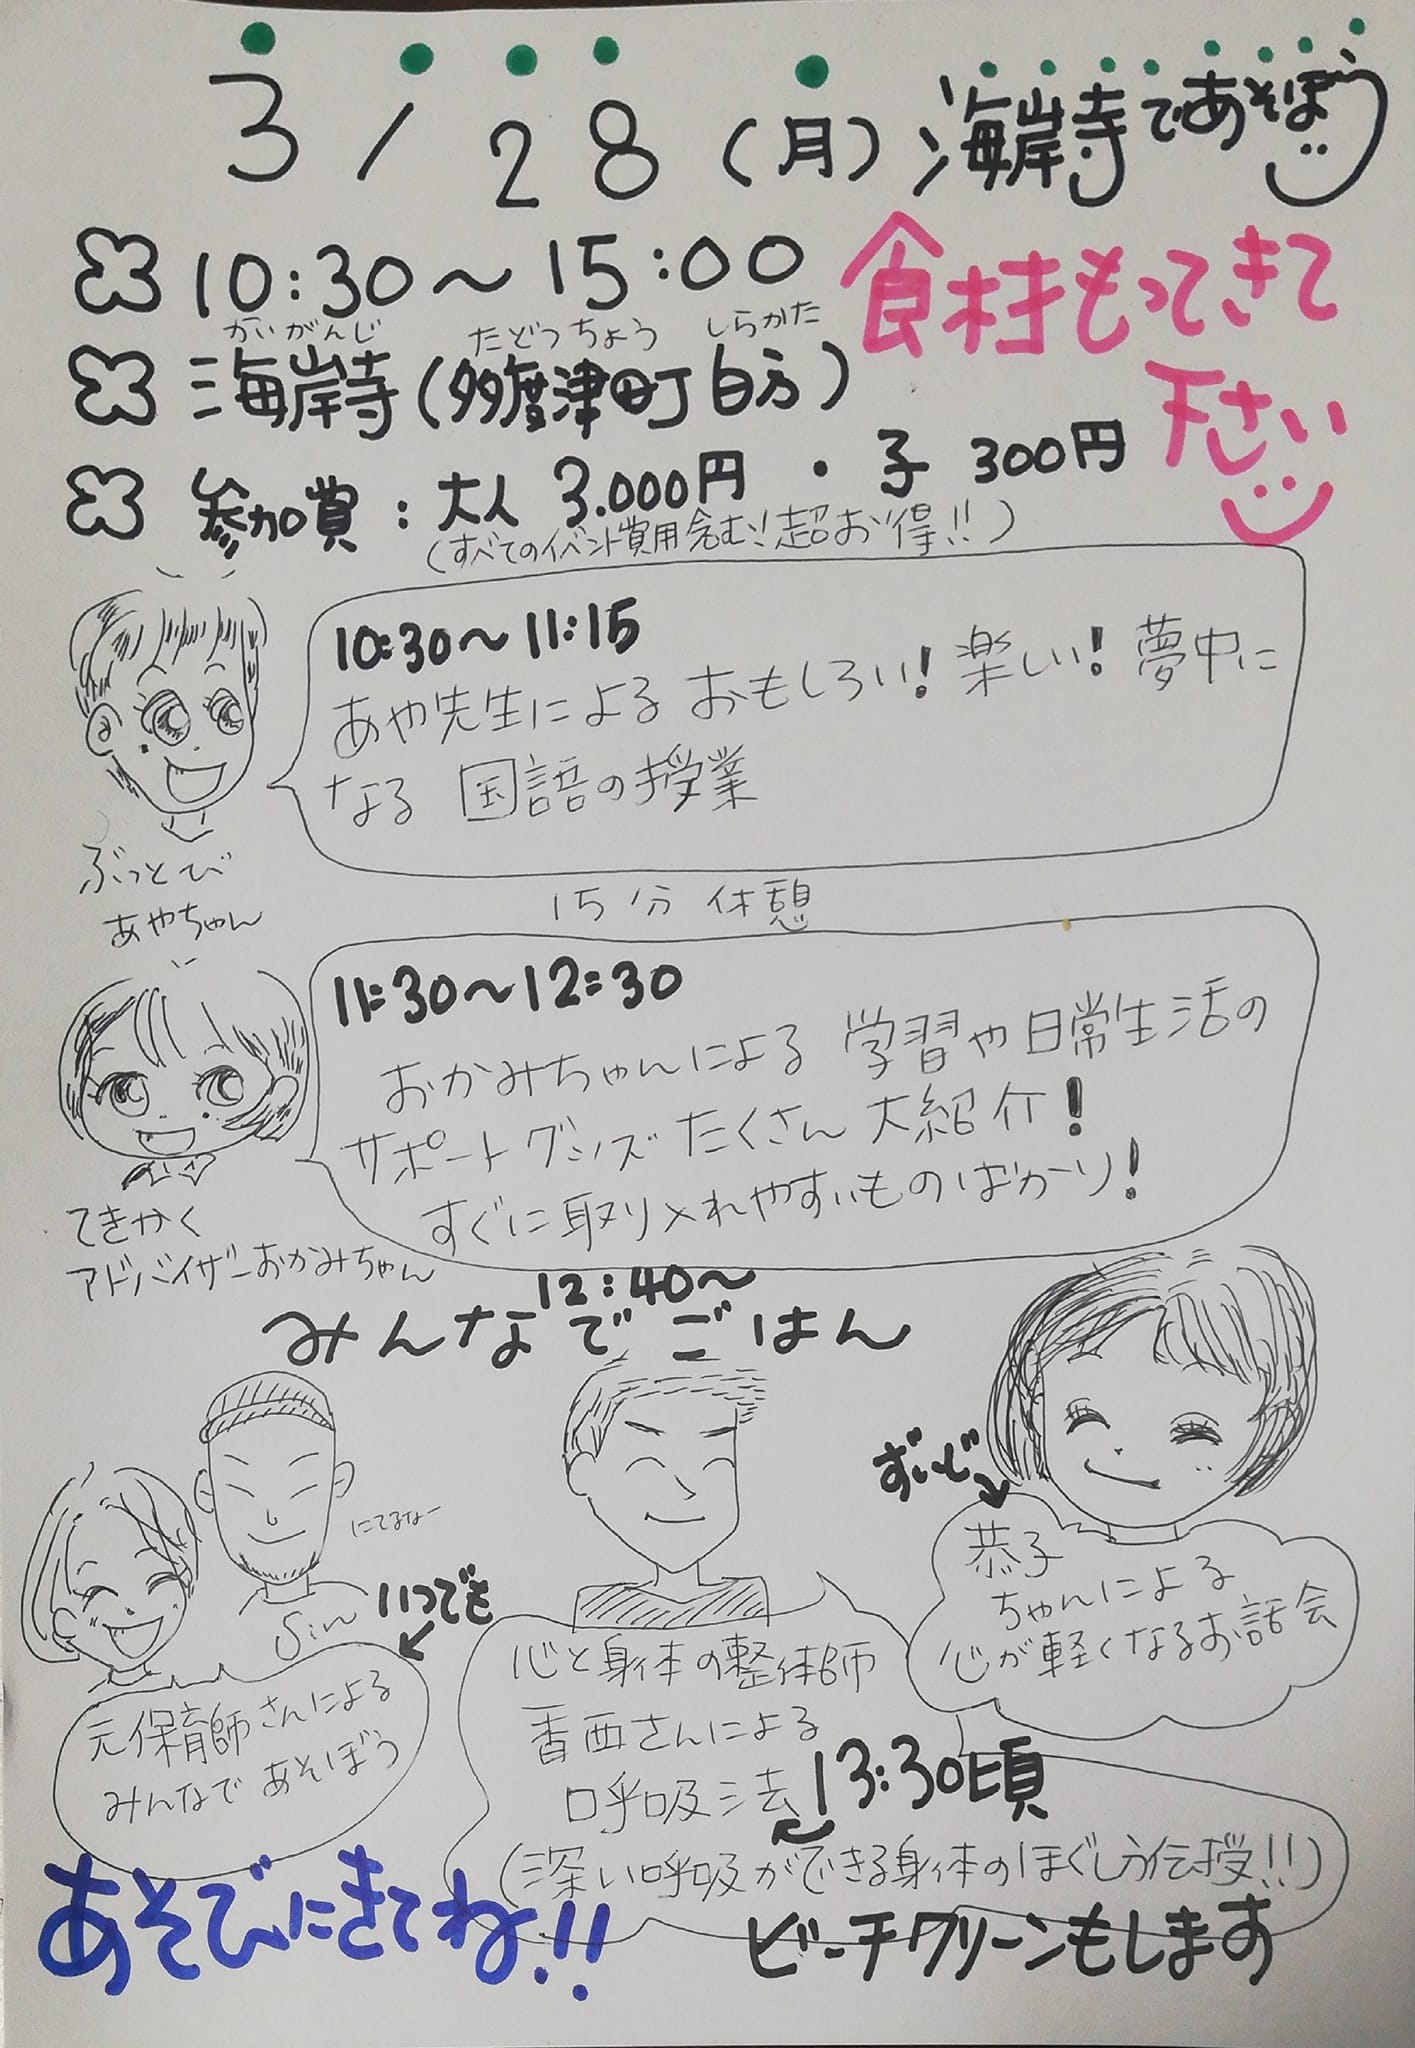 3/28(月)海岸寺であそぼう
10:30〜15:00
食材もってきて
下さい
かいがんじ たどつちょう しらかた
海岸寺(多度津町白方)
参加費:大人 3.000円・子 300円
(すべてのイベント費用含む!超お得!!)
10:30〜11:15
あや先生による おもしろい!楽しい!夢中に
なる 国語の授業
ぶっとび
あやちゃん
15分 休憩
11:30〜12:30
おかみちゃんによる 学習や日常生活の
サポートグッズ たくさん 大紹介!
すぐに取り入れやすいものばかーり!
てきかく
アドバイザーおかみちゃん
12:40〜
みんなでごはん
にてるなー
Sin
いつでも
元保育師さんによる
みんなで あそぼう
心と身体の整体師
香西さんによる
呼吸法
13:30頃
(深い呼吸ができる身体のほぐし方伝授!!)
ずいじ
恭子
ちゃんによる
心が軽くなるお話会
あそびにきてね!!
ビーチクリーンもします